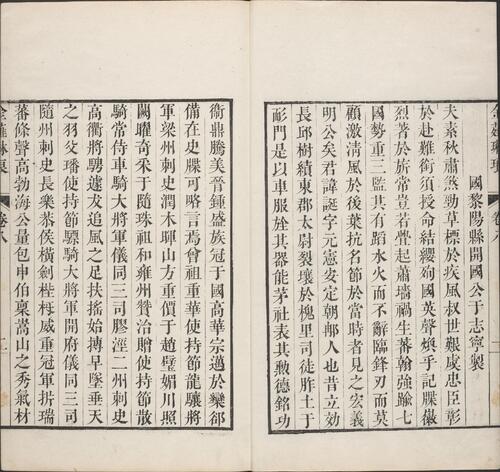 國黎陽縣開國公于志寧製
夫素秋肅煞勁草標於疾風叔世艱虞忠臣彰
於赴難銜須授命結纓殉國英聲煥乎記牒徽
烈著於旂常豈若舋起蕭牆禍生蕃翰強踰七
國勢重三監其有蹈水火而不辭臨鋒刃而莫
顧激清風於後葉抗名節於當時者見之宏義
明公矣君諱誕字元憲安定朝䢴人也昔立效
長邱樹績東郡太尉裂壤於槐里司徒胙土于
耏門是以車服旌其器能茅社表其勲德銘功
衞鼎騰美晉鍾盛族冠于國高華宗邁於欒郤
備在史牒可略言焉曾祖重華使持節龍驤將
軍梁州刺史潤木暉山方重價于趙璧媚川照
闕曜奇采于隨珠祖和雍州贊治贈使持節散
騎常侍車騎大將軍儀同三司膠涇二州刺史
高衢將騁遽友追風之足扶搖始摶早墜垂天
之羽父璠使持節驃騎大將軍開府儀同三司
隨州刺史長樂恭侯橫劍桂梅威重冠軍析瑞
蕃條聲高勃海公量包申伯稟嵩山之秀氣材
金薤琳琅 卷八 二